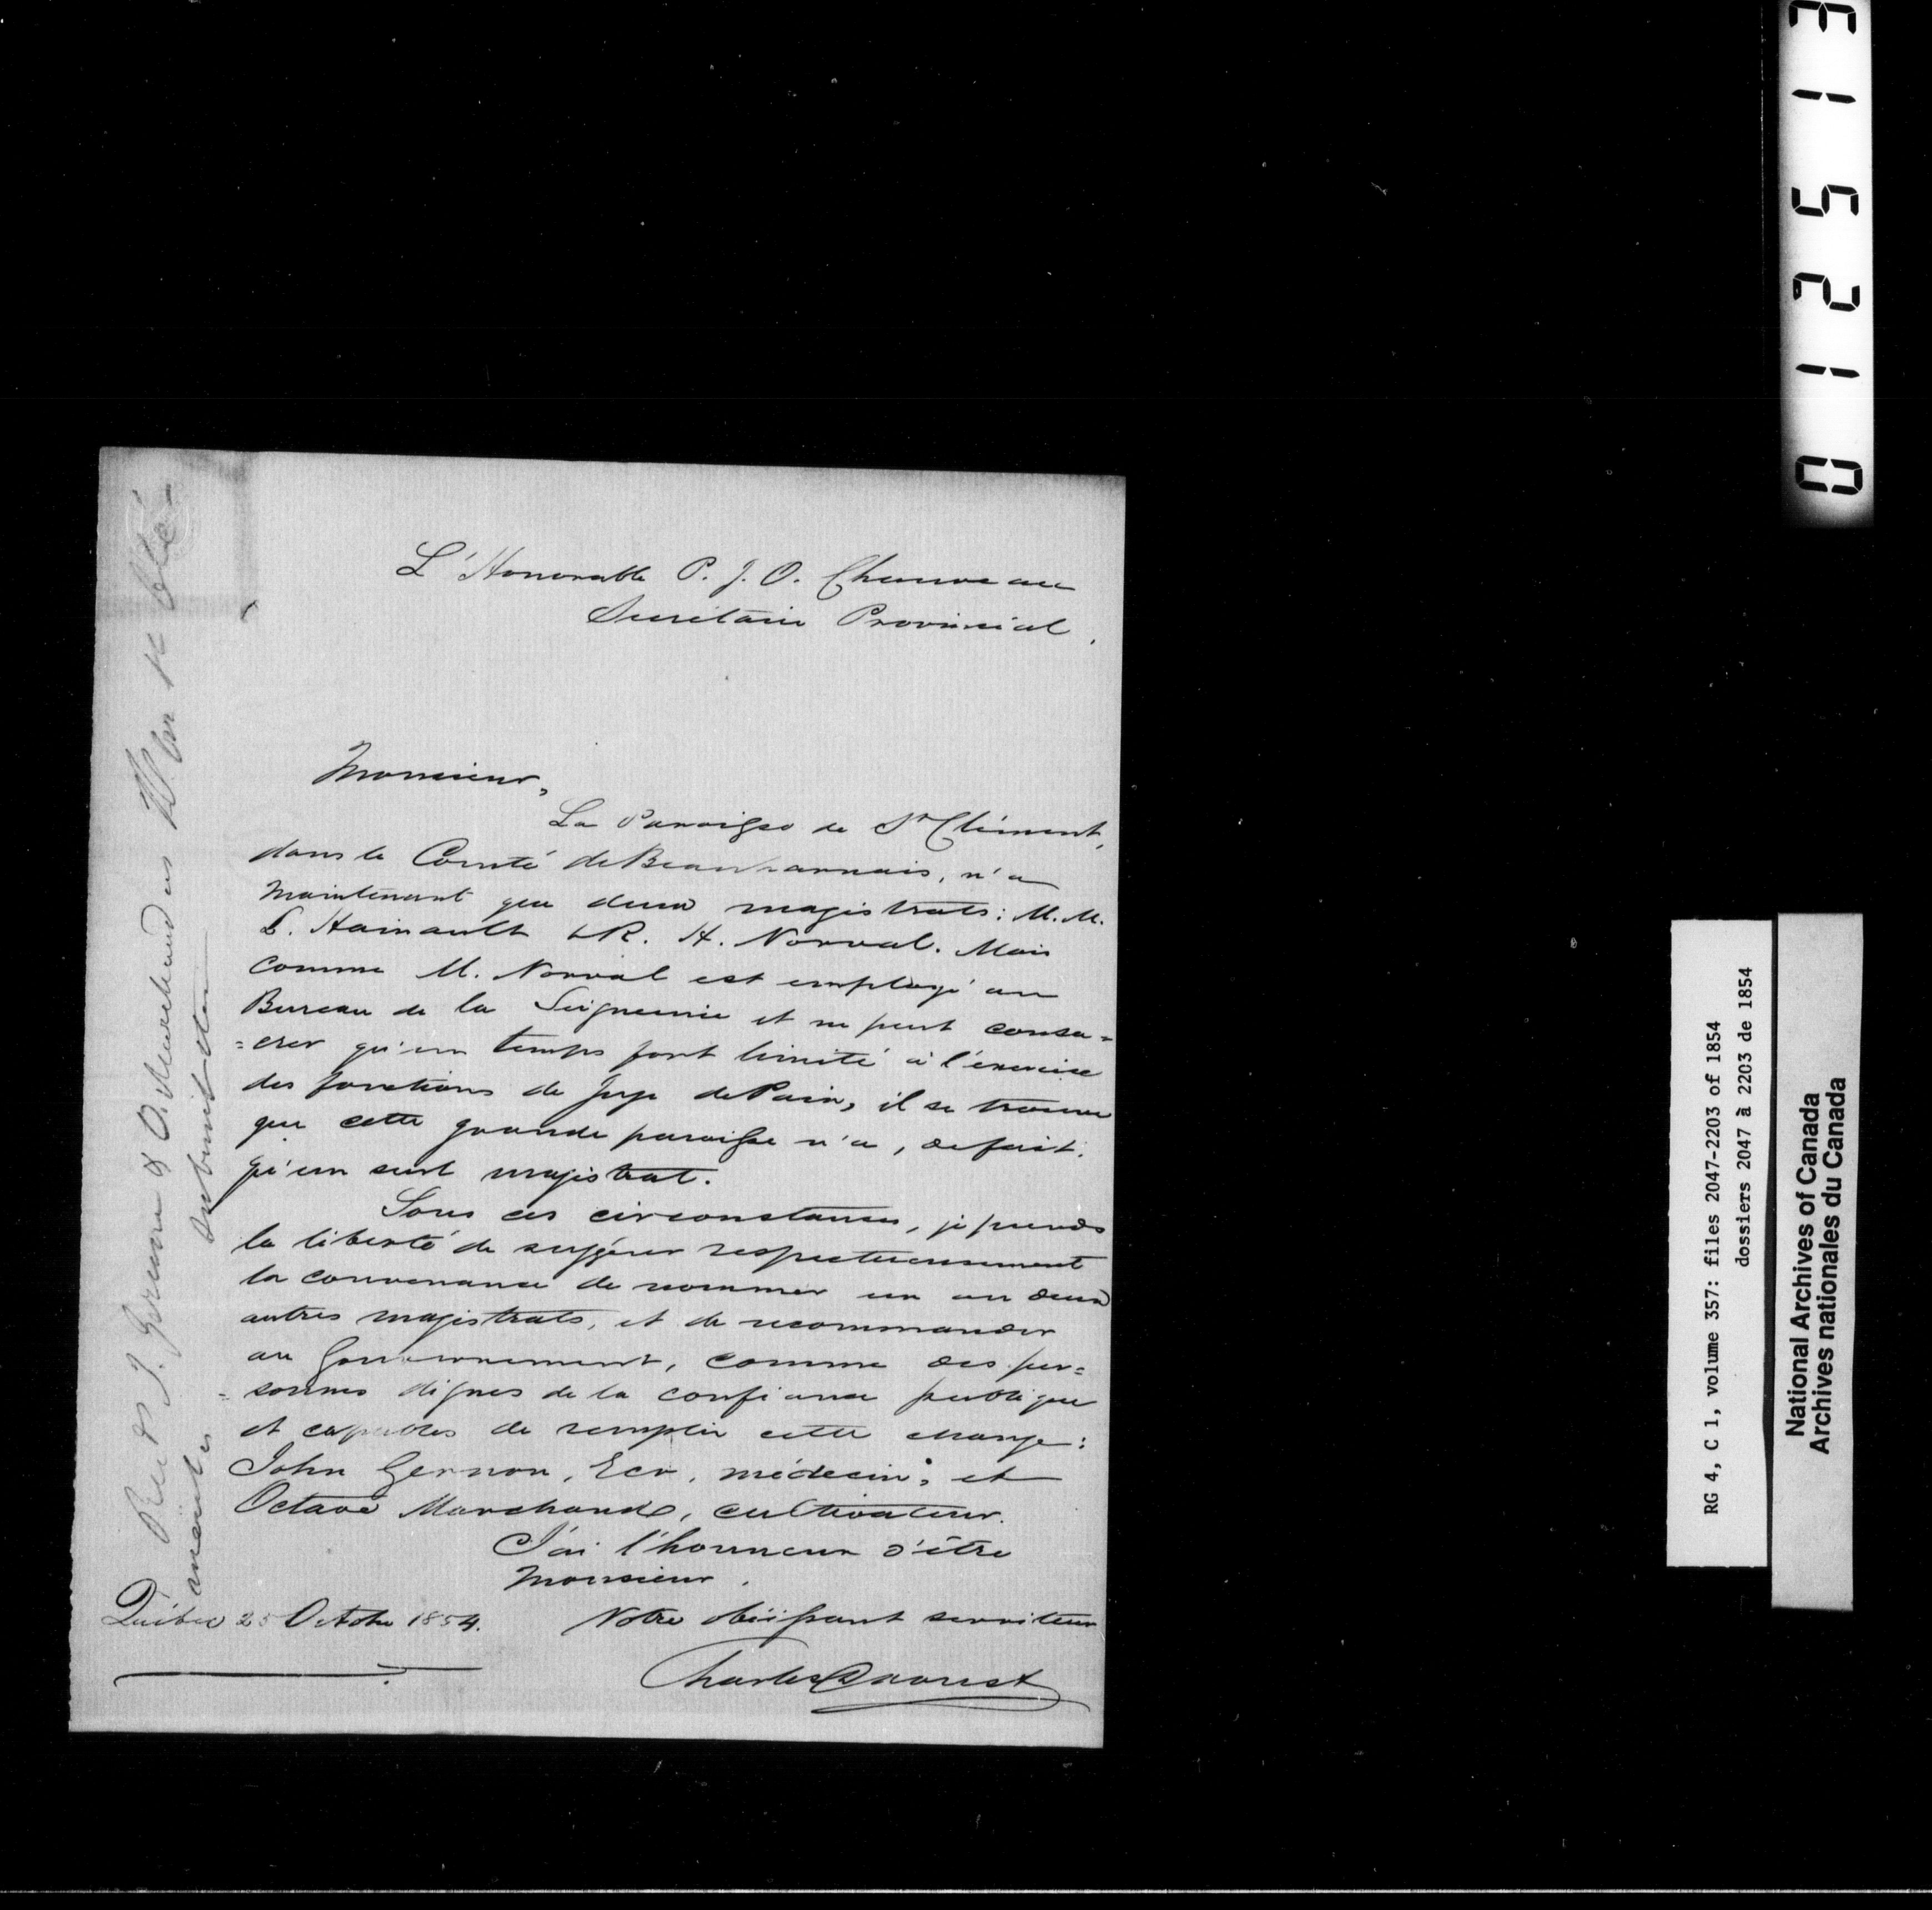 L'Honorable P. J. O. Chauveau
Secrétaire Provincial.
Monsieur,
La Paroisse de St Clément,
dans le Comté de Beauharnais, n'a
maintenant que deux magistrats: M. M.
L. Hainault & R. H. Norval. Mais
comme M. Norval est employé au
Bureau de la Seigneurie et ne peut consa=
=crer qu'un temps fort limité à l'exercice
des fonctions de Juge de Paix, il se trouve
que cette grande paroisse n'a, de fait,
qu'un seul magistrat.
Sous ces circonstances, je prends
la liberté de suggérer respectueusement
la convenance de nommer un ou deux
autres magistrats, et de recommander
au Gouvernement, comme des per=
=sonnes dignes de la confiance publique
et capables de remplir cette charge:
John Gernon, Ecr, médecin; et
Octave Marchand, cultivateur.
J'ai l'honneur d'être
Monsieur,
Votre obéissant serviteur
Québec 25 Octobre 1854.
Charles Daoust
O. Marchand
012513
RG 4, C 1, volume 357: files 2047-2203 of 1854
dossiers 2047 à 2203 de 1854
National Archives of Canada
Archives nationales du Canada